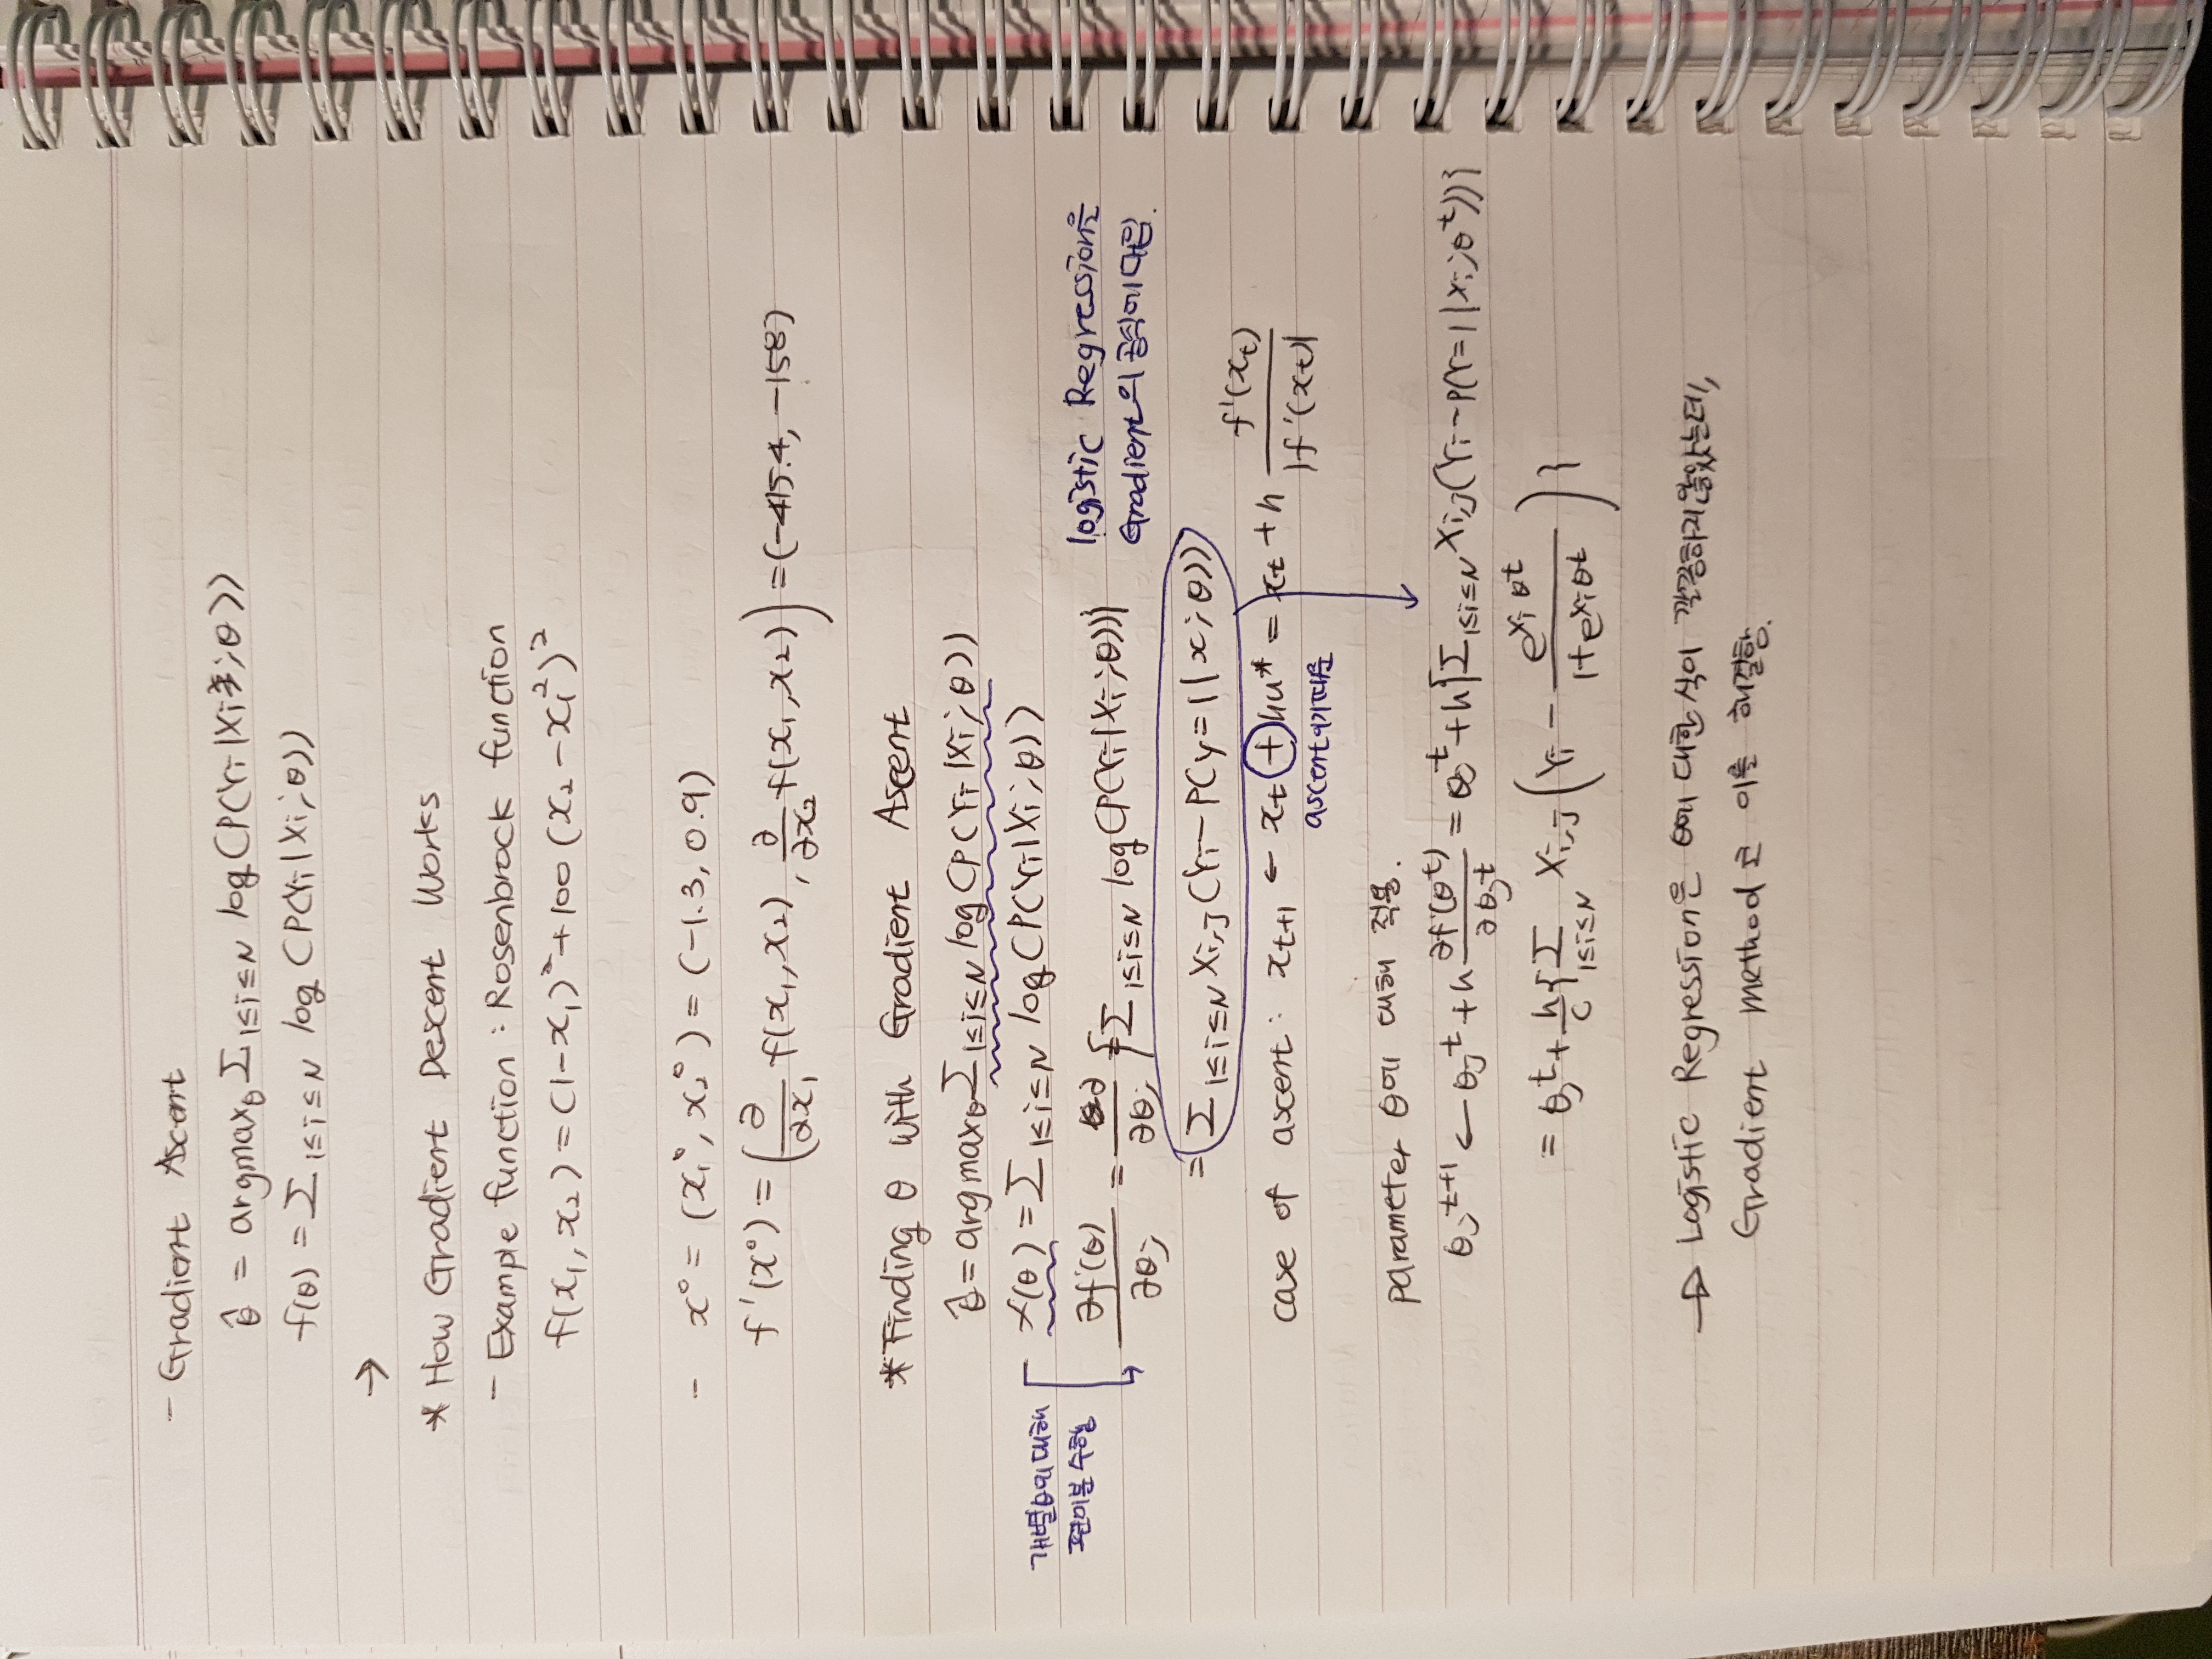 - Gradient Ascent
θ̂ = argmaxθ Σ 1≤i≤N log(P(Yi|Xi;θ))
f(θ) = Σ 1≤i≤N log(P(Yi|Xi;θ))
→
* How Gradient Descent Works
- Example function : Rosenbrock function
f(x₁, x₂) = (1-x₁)² + 100(x₂-x₁²)²
- x⁰ = (x₁⁰, x₂⁰) = (-1.3, 0.9)
f'(x⁰) = (∂/∂x₁ f(x₁,x₂), ∂/∂x₂ f(x₁,x₂)) = (-415.4, -158)
* Finding θ with Gradient Ascent
θ̂ = argmaxθ Σ 1≤i≤N log(P(Yi|Xi;θ))
f(θ) = Σ 1≤i≤N log(P(Yi|Xi;θ))
개별 θ에 대해
편미분 수행
∂f(θ)/∂θj = ∂/∂θj {Σ 1≤i≤N log(P(Yi|Xi;θ))}
logistic Regression을
Gradient의 공식에
= Σ 1≤i≤N Xi,j (Yi - P(y=1|x;θ))
case of ascent : xt+1 ← xt + hu* = xt + h f'(xt)/|f'(xt)|
ascent이기 때문
parameter θ에 대해 적용.
θj^t+1 ← θj^t + h ∂f(θ^t)/∂θj^t = θj^t + h{Σ 1≤i≤N Xi,j (Yi - P(Y=1|Xi;θ^t))}
= θj^t + h/C {Σ 1≤i≤N Xi,j (Yi - e^Xiθ^t/1+e^Xiθ^t)}
→ Logistic Regression은 θ에 대한 식이 깔끔하지 않았는데,
Gradient method로 이를 해결함.